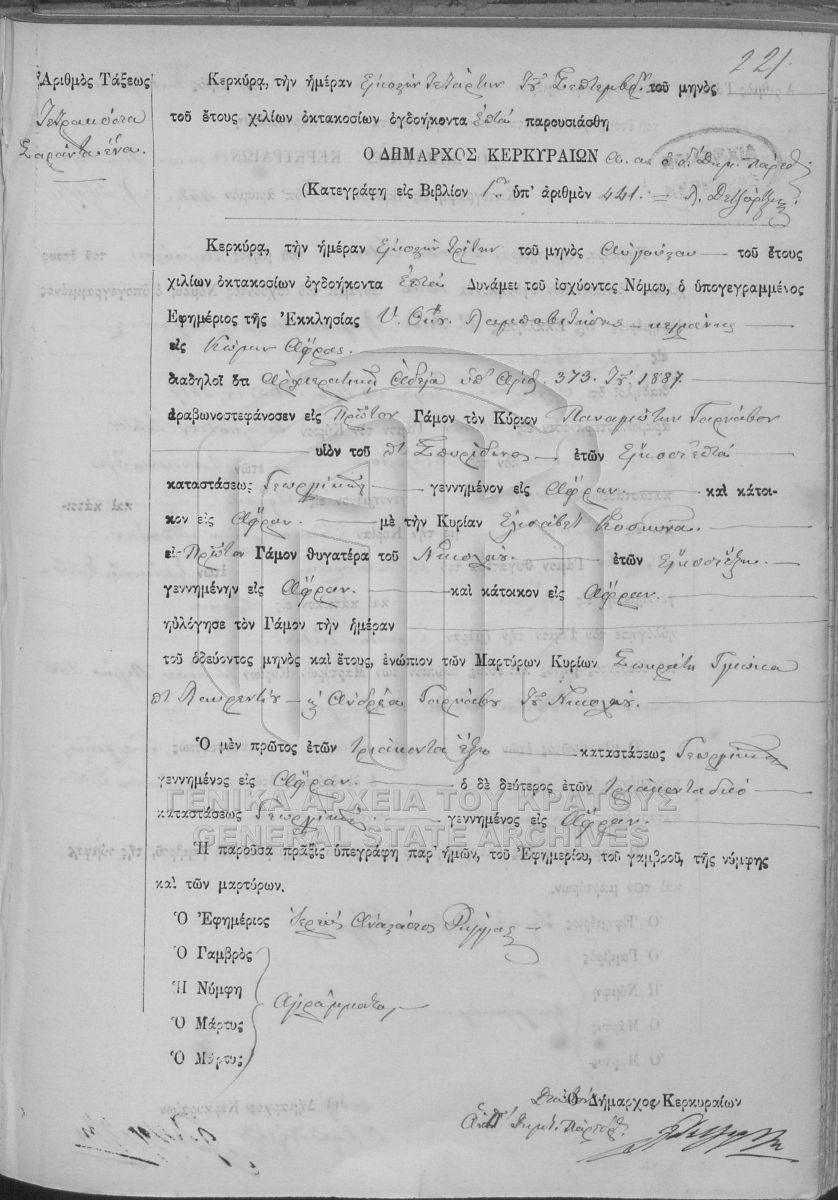 221.
Ἀριθμὸς Τάξεως
Τετρακόσια
Σαράντα ένα.
Κερκύρᾳ, τὴν ἡμέραν εἰκοστὴν τετάρτην τοῦ Σεπτεμβρ. τοῦ μηνὸς
τοῦ ἔτους χιλίων ὀκτακοσίων ὀγδοήκοντα ἑπτά παρουσιάσθη
Ὁ ΔΗΜΑΡΧΟΣ ΚΕΡΚΥΡΑΙΩΝ
(Κατεγράφη εἰς Βιβλίον Γον ὑπ' ἀριθμὸν 441.
Κερκύρᾳ, τὴν ἡμέραν εἰκοστὴν τρίτην τοῦ μηνὸς Αὐγούστου τοῦ ἔτους
χιλίων ὀκτακοσίων ὀγδοήκοντα ἑπτά Δυνάμει τοῦ ἰσχύοντος Νόμου, ὁ ὑπογεγραμμένος
Ἐφημέριος τῆς Ἐκκλησίας Υ. Θκου Λαμποβιτήσης κειμένης
εἰς Κώμην Αφρας.
διαδηλοῖ ὅτι Αρχιερατικῇ Αδεία υπ' Αριθ. 373. τοῦ 1887
ἀραβωνοστεφάνοσεν εἰς Πρῶτον Γάμον τὸν Κύριον Παναγιώτην Γαρνάβον
υἱὸν τοῦ πτ Σπυρίδωνος ἐτῶν εἴκοσι ἑπτά
καταστάσεως Γεωργικῆς γεννημένον εἰς Αφραν καὶ κάτοι-
κον εἰς Αφραν. μὲ τὴν Κυρίαν Ελισάβετ Κοσμῶνα.
εἰς Πρῶτον Γάμον θυγατέρα τοῦ Νικολάου. ἐτῶν εἴκοσι ἕξη.
γεννημένην εἰς Αφραν. καὶ κάτοικον εἰς Αφραν.
ηὐλόγησε τὸν Γάμον τὴν ἡμέραν
τοῦ ὁδεύοντος μηνὸς καὶ ἔτους, ἐνώπιον τῶν Μαρτύρων Κυρίων Σωκράτη
πτ Λαυρεντίου κ Ανδρέα Γαρνάβου τοῦ Νικολάου.
Ὁ μὲν πρῶτος ἐτῶν τριάκοντα ἕξη καταστάσεως Γεωργικῆς
γεννημένος εἰς Αφραν. ὁ δὲ δεύτερος ἐτῶν τριάκοντα δύο
καταστάσεως Γεωργικῆς γεννημένος εἰς Αφραν.
ΓΕΝΙΚΑ ΑΡΧΕΙΑ ΤΟΥ ΚΡΑΤΟΥΣ
GENERAL STATE ARCHIVES
Ἡ παροῦσα πρᾶξις ὑπεγράφη παρ' ἡμῶν, τοῦ Ἐφημερίου, τοῦ γαμβροῦ, τῆς νύμφης
καὶ τῶν μαρτύρων.
Ὁ Ἐφημέριος Ιερεύς Αναστάσιος
Ὁ Γαμβρὸς
Ἡ Νύμφη
Αγράμματοι
Ὁ Μάρτυς
Ὁ Μάρτυς
Ὁ Δήμαρχος Κερκυραίων